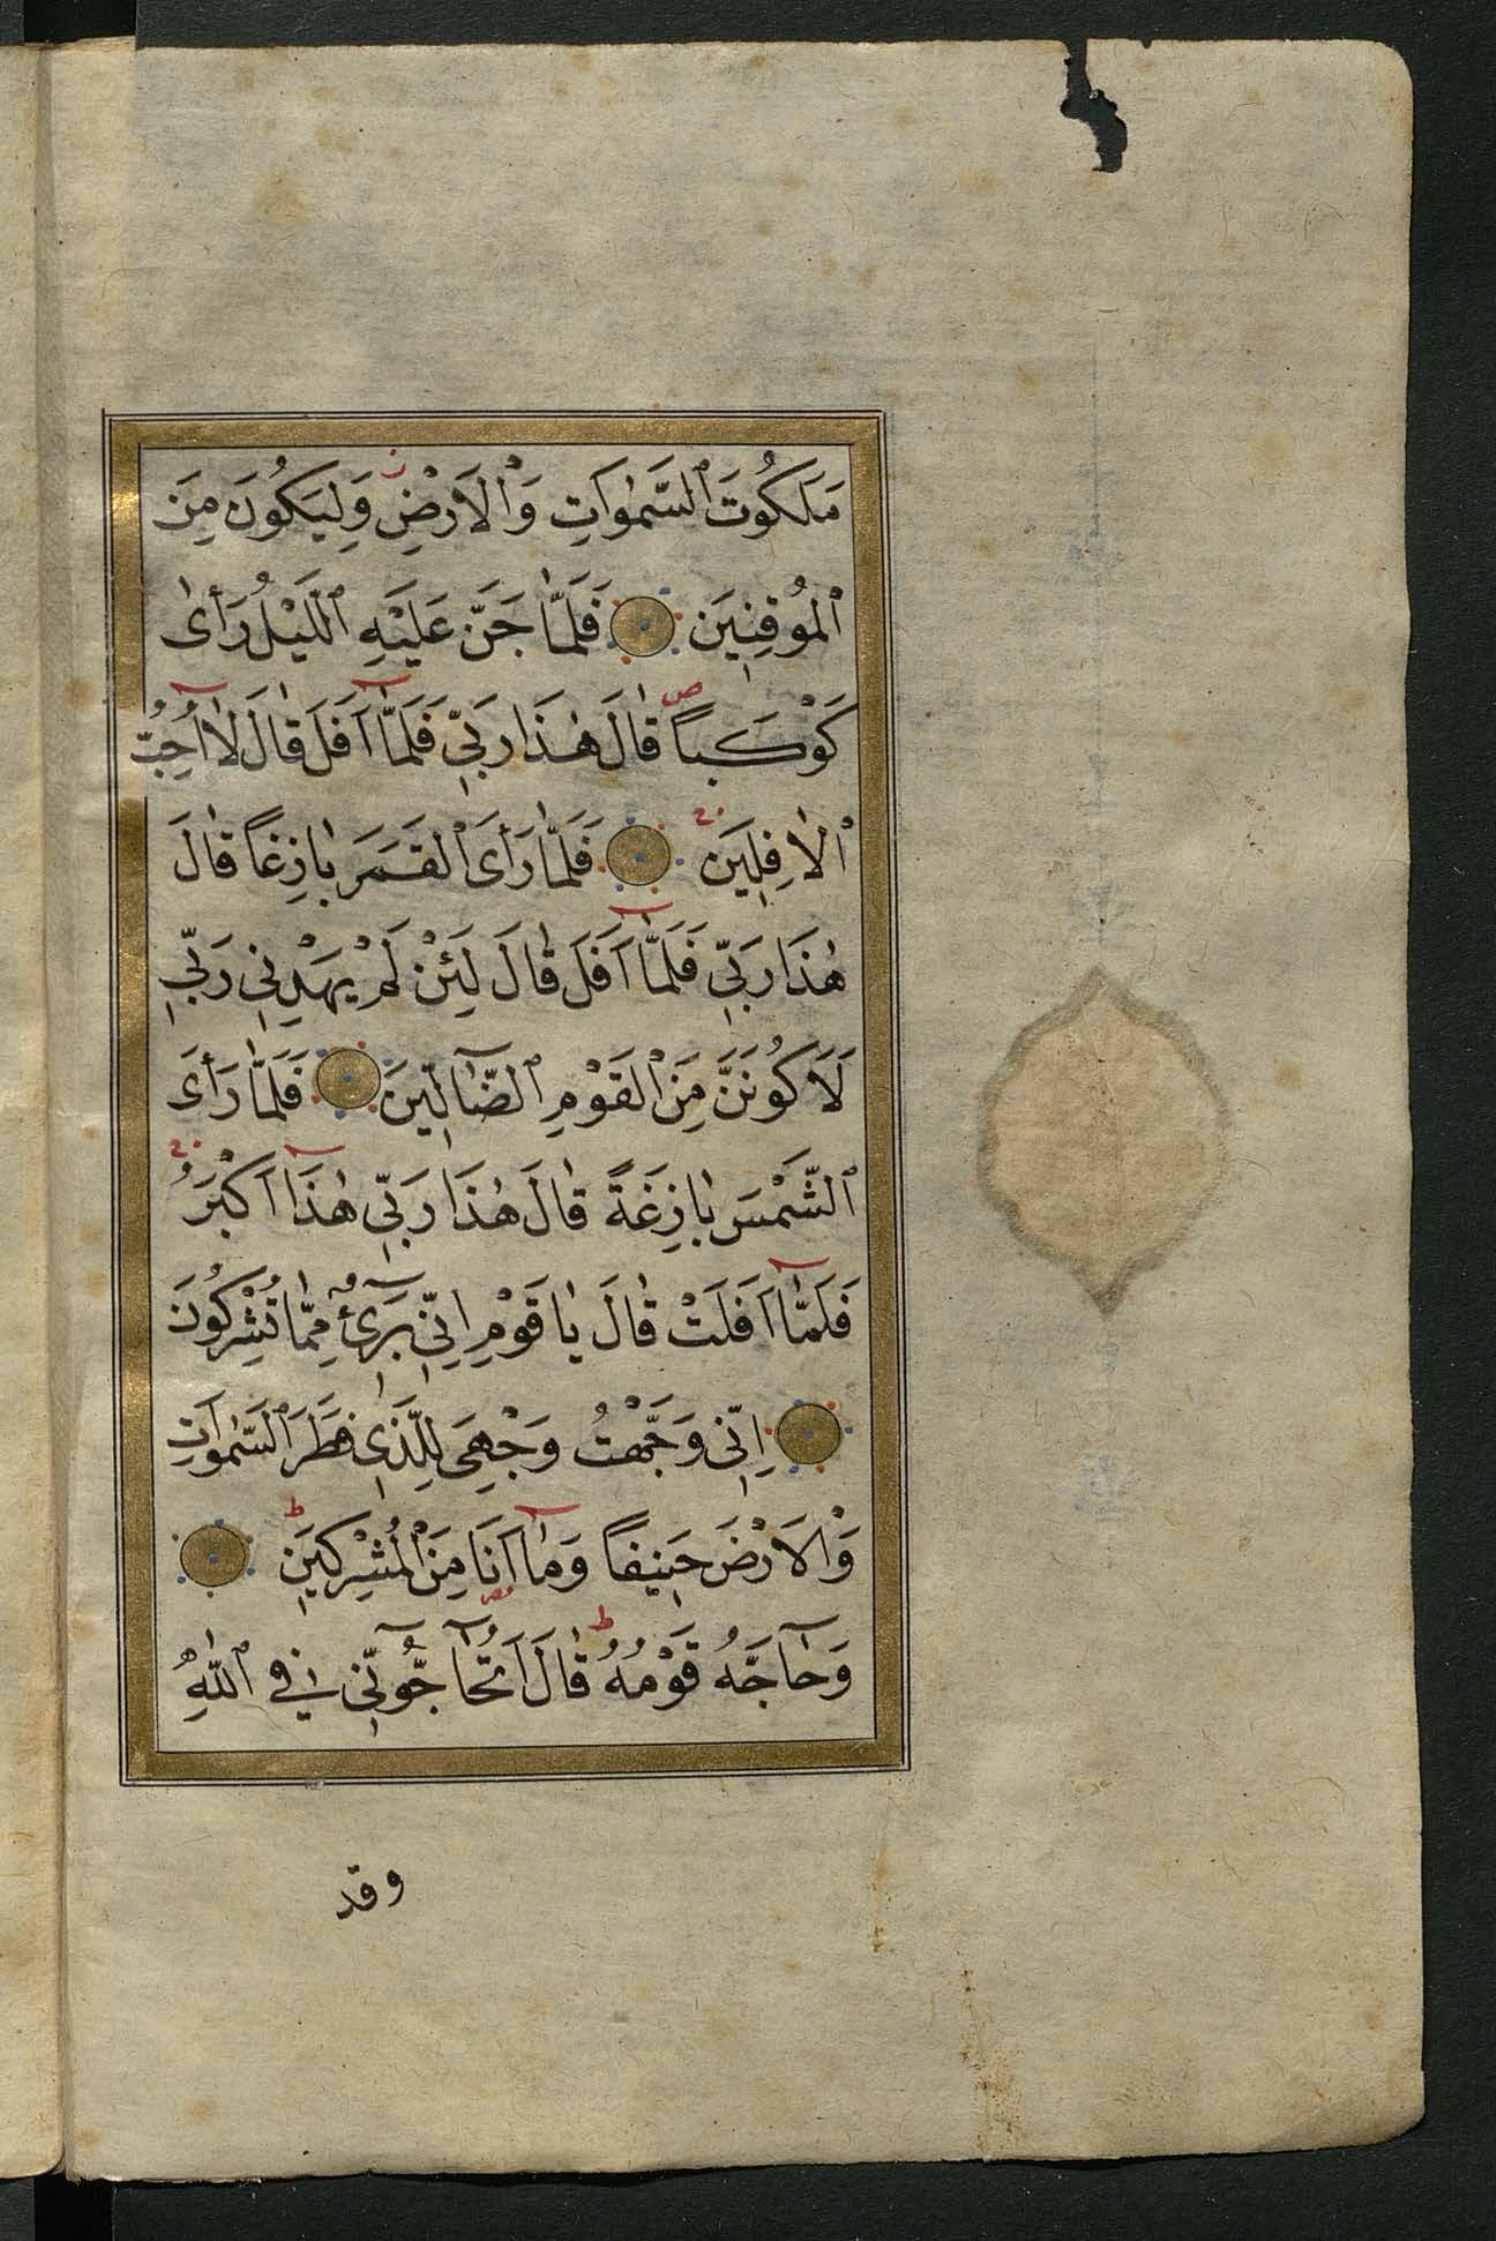 مَلَكُوتَ ٱلسَّمٰوَاتِ وَٱلْاَرْضِ وَلِيَكُونَ مِنَ
ٱلْمُوقِنِينَ فَلَمَّا جَنَّ عَلَيْهِ ٱلَّيْلُ رَأٰى
كَوْكَبًا قَالَ هٰذَا رَبِّي فَلَمَّٓا اَفَلَ قَالَ لَٓا اُحِبُّ
ٱلْاٰفِلِينَ فَلَمَّا رَأَى ٱلْقَمَرَ بَازِغًا قَالَ
هٰذَا رَبِّي فَلَمَّٓا اَفَلَ قَالَ لَئِنْ لَمْ يَهْدِنِي رَبِّي
لَاَكُونَنَّ مِنَ ٱلْقَوْمِ ٱلضَّٓالِّينَ فَلَمَّا رَأَى
ٱلشَّمْسَ بَازِغَةً قَالَ هٰذَا رَبِّي هٰذَٓا اَكْبَرُ
فَلَمَّٓا اَفَلَتْ قَالَ يَا قَوْمِ اِنِّي بَرِٓئٌ مِمَّا تُشْرِكُونَ
اِنِّي وَجَّهْتُ وَجْهِيَ لِلَّذِي فَطَرَ ٱلسَّمٰوَاتِ
وَٱلْاَرْضَ حَنِيفًا وَمَٓا اَنَا مِنَ ٱلْمُشْرِكِينَ
وَحَٓاجَّهُ قَوْمُهُ قَالَ اَتُحَٓاجُّٓونِّي فِي ٱللّٰهِ
وقد